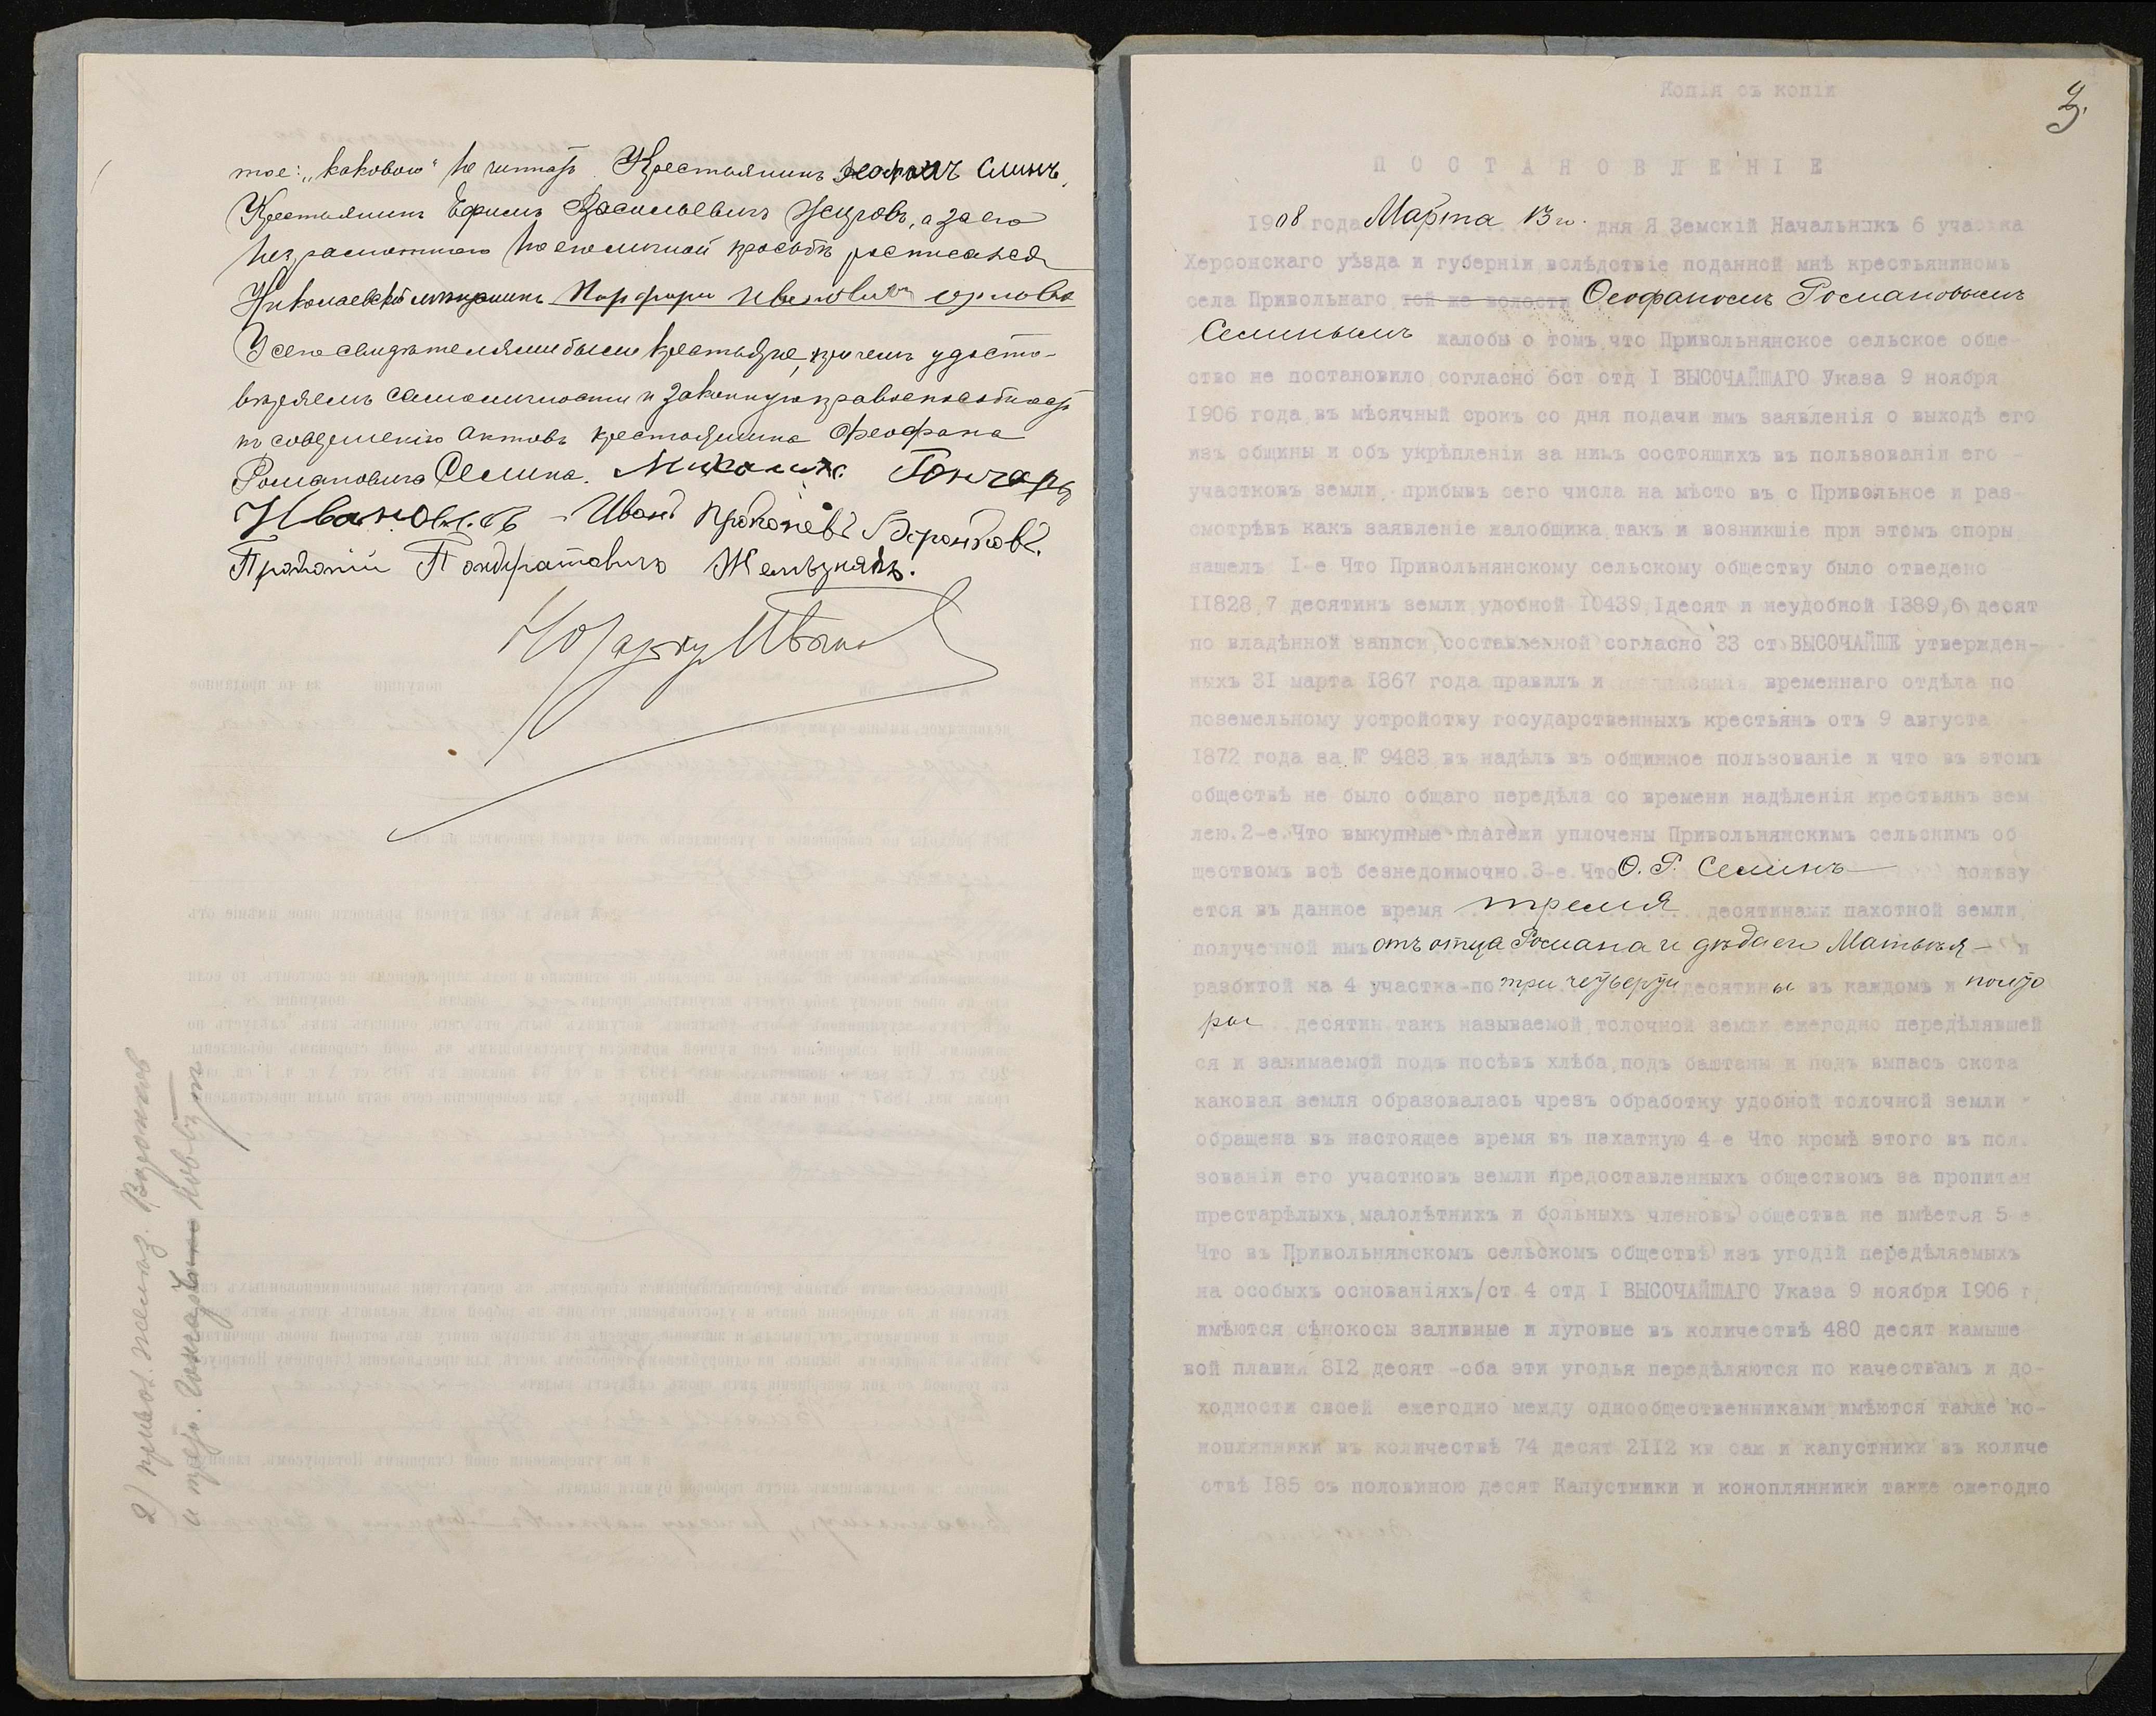 тое: „каковою" не читать. Крестьянинъ Феофанъ Семинъ.
Крестьянинъ Ефимъ Васильевичъ а за его
неграмотнаго по его личной просьбѣ росписался
Николаевскій мѣщанинъ Порфири Ивановичъ Орловъ
У сего свидѣтелями были крестьяне, причемъ удосто-
вѣряемъ самоличность и законную правоспособность
къ совершенію актовъ крестьянина Феофана
Романовича Семина. Гончаръ
Ивановичъ - Иванъ Прокопьевъ Воронковъ.
Прокопій Пондратовичъ Желѣзнякъ.
2) Воронков
Копія съ копіи
2.
ПОСТАНОВЛЕНІЕ
1908 года Марта 13го дня Я Земскій Начальникъ 6 участка
Херсонскаго уѣзда и губерніи вслѣдствіе поданной мнѣ крестьяниномъ
села Привольнаго той же волости Ѳеофаномъ Романовымъ
Семинымъ жалобы о томъ, что Привольнянское сельское обще-
ство не постановило согласно 6ст отд I ВЫСОЧАЙШАГО Указа 9 ноября
1906 года въ мѣсячный срокъ со дня подачи имъ заявленія о выходѣ его
изъ общины и объ укрѣпленіи за нимъ состоящихъ въ пользованіи его -
участковъ земли, прибывъ сего числа на мѣсто въ с Привольное и раз-
смотрѣвъ какъ заявленіе жалобщика такъ и возникшіе при этомъ споры
нашелъ I-е Что Привольнянскому сельскому обществу было отведено
11828,7 десятинъ земли, удобной 10439,1десят и неудобной 1389,6 десят
по владѣнной записи, составленной согласно 33 ст ВЫСОЧАЙШЕ утвержден-
ныхъ 31 марта 1867 года правилъ и временнаго отдѣла по
поземельному устройству государственныхъ крестьянъ отъ 9 августа
1872 года за № 9483 въ надѣлъ въ общинное пользованіе и что въ этомъ
обществѣ не было общаго передѣла со времени надѣленія крестьянъ зем
лею. 2-е. Что выкупные платежи уплочены Привольнянскимъ сельскимъ об
ществомъ всѣ безнедоимочно. 3-е. Что Ѳ. Р. Семинъ пользу
ется въ данное время тремя десятинами пахотной земли,
полученной имъ отъ отца Романа и дѣда его Матвѣя - и
разбитой на 4 участка-по три четверти десятины въ каждомъ и полуто
ры десятин такъ называемой, толочной земли ежегодно передѣлявшей
ся и занимаемой подъ посѣвъ хлѣба, подъ баштаны и подъ выпасъ скота
каковая земля образовалась чрезъ обработку удобной толочной земли
обращена въ настоящее время въ пахатную 4-е Что кромѣ этого въ пол.
зованіи его участковъ земли предоставленныхъ обществомъ за пропитан
престарѣлыхъ, малолѣтнихъ и больныхъ членовъ общества не имѣется 5-е
Что въ Привольнянскомъ сельскомъ обществѣ изъ угодій передѣляемыхъ
на особыхъ основаніяхъ/ст 4 отд I ВЫСОЧАЙШАГО Указа 9 ноября 1906 г.
имѣются сѣнокосы заливные и луговые въ количествѣ 480 десят камыше
вой плавни 812 десят -оба эти угодья передѣляются по качествамъ и до-
ходности своей ежегодно между однообщественниками, имѣются также ко-
нопляники въ количествѣ 74 десят 2112 кв саж и капустники въ количе
ствѣ 185 съ половиною десят Капустники и коноплянники также ежегодно